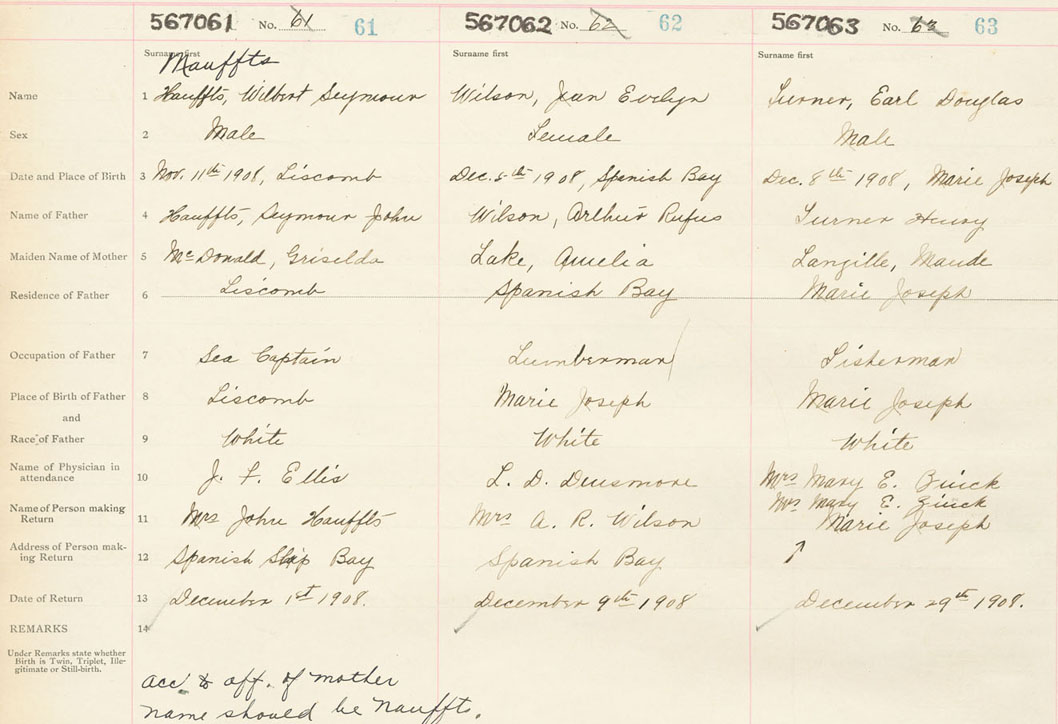 567061 No. 61 61 567062 No. 62 62 567063 No. 63 63
Surname first Surname first Surname first
Nauffts
Name 1 Hauffts, Wilbert Seymour Wilson, Jean Evelyn Turner, Earl Douglas
Sex 2 Male Female Male
Date and Place of Birth 3 Nov. 11th 1908, Liscomb Dec. th 1908, Spanish Bay Dec. 8th 1908, Marie Joseph
Name of Father 4 Hauffts, Seymour John Wilson, Arthur Rufus Turner Henry
Maiden Name of Mother 5 McDonald, Griselda Lake, Amelia Langille, Maude
Residence of Father 6 Liscomb Spanish Bay Marie Joseph
Occupation of Father 7 Sea Captain Lumberman Fisherman
Place of Birth of Father 8 Liscomb Marie Joseph Marie Joseph
and
Race of Father 9 White White White
Name of Physician in
attendance 10 J. F. Ellis L. D. Densmore Mrs Mary E. Zuick
Name of Person making Mrs Mary E. Zuick
Return 11 Mrs John Hauffts Mrs A. R. Wilson Marie Joseph
Address of Person mak-
ing Return 12 Spanish Ship Bay Spanish Bay
Date of Return 13 December 1st 1908. December 9th 1908 December 29th 1908.
REMARKS 14
Under Remarks state whether
Birth is Twin, Triplet, Ille-
gitimate or Still-birth.
acc to aff. of mother
name should be Nauffts.